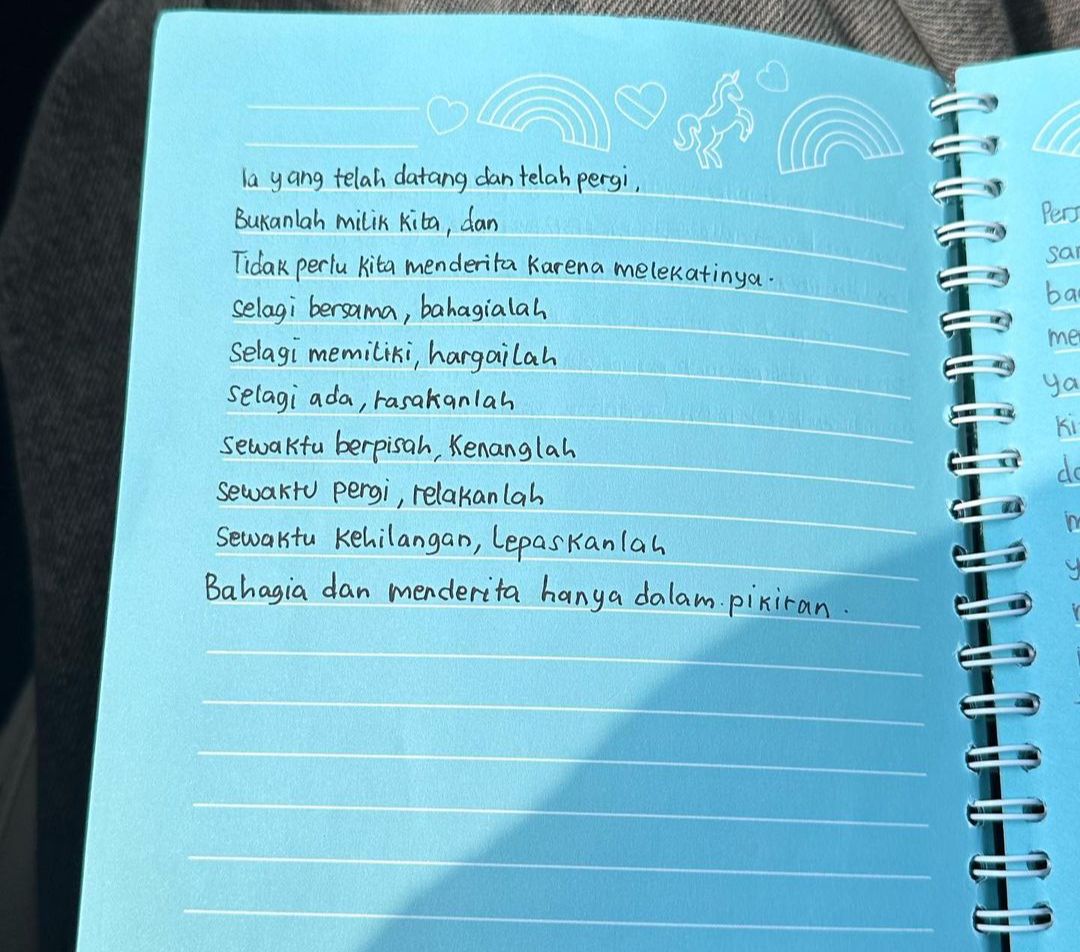 Ia yang telah datang dan telah pergi,
Bukanlah milik kita, dan
Tidak perlu kita menderita karena melekatinya.
selagi bersama, bahagialah
selagi memiliki, hargailah
selagi ada, rasakanlah
sewaktu berpisah, kenanglah
sewaktu pergi, relakanlah
sewaktu kehilangan, lepaskanlah
Bahagia dan menderita hanya dalam pikiran.